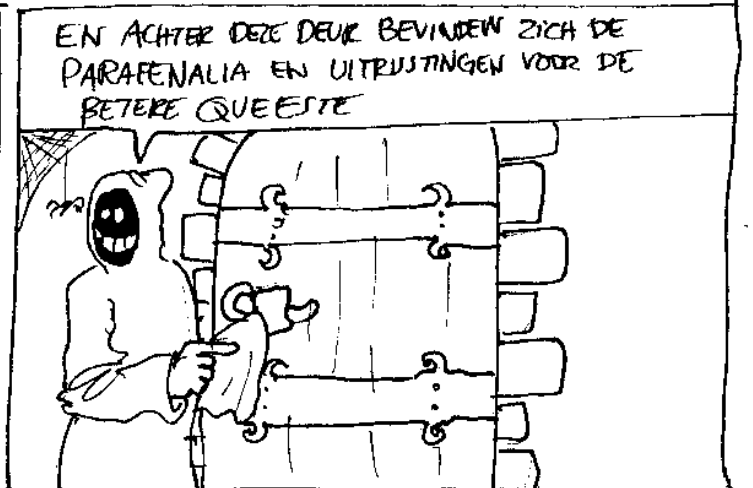 EN ACHTER DEZE DEUR BEVINDEN ZICH DE
PARAFENALIA EN UITRUSTINGEN VOOR DE
BETERE QUEESTE